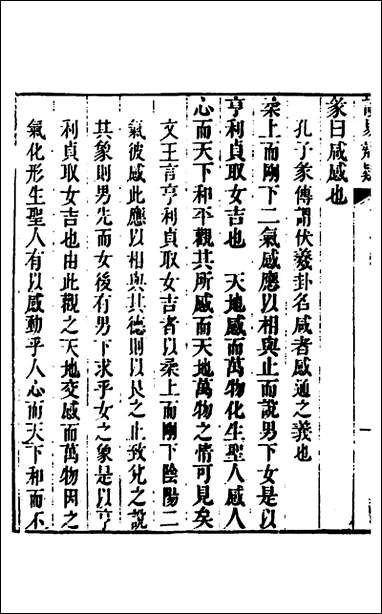 彖曰咸感也
孔子彖傳謂伏羲卦名咸者感通之義也
柔上而剛下二氣感應以相與止而說男下女是以
亨利貞取女吉也 天地感而萬物化生聖人感人
心而天下和平觀其所感而天地萬物之情可見矣
文王言亨利貞取女吉者以柔上而剛下陰陽二
氣彼感此應以相與其德則以艮之止致兌之說
其象則男先而女後有男下求乎女之象是以亨
利貞取女吉也由此觀之天地交感而萬物因之
氣化形生聖人有以感動乎人心而天下和而不